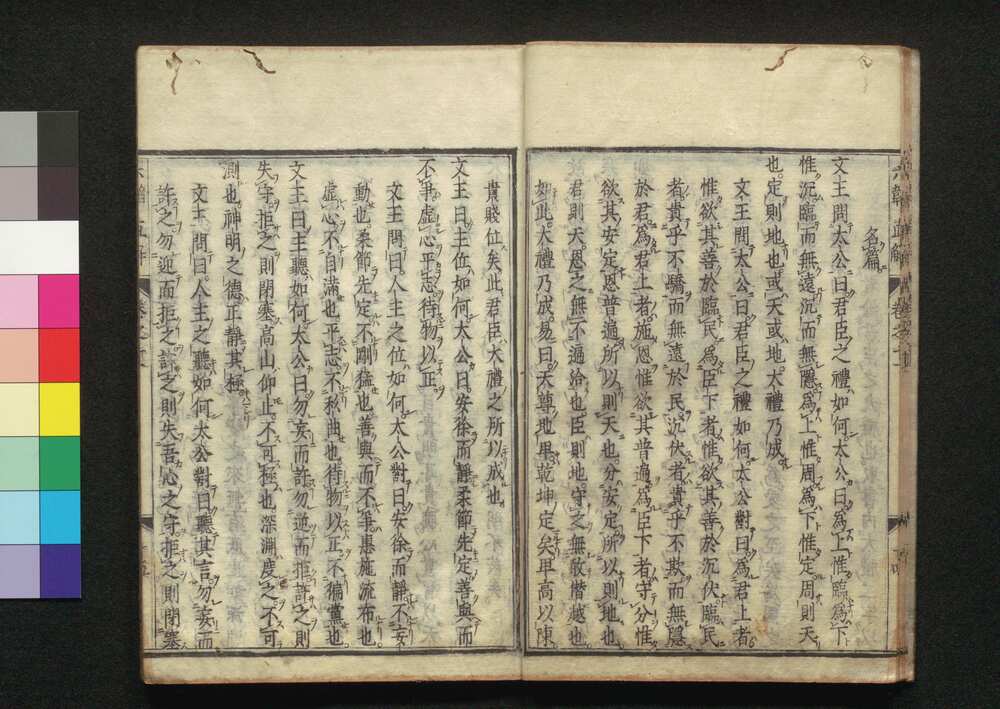 名篇
文王問太公曰君臣之禮如何太公曰為上惟臨為下
惟沉臨而無遠沉而無隱為上惟周為下惟定周則天
也定則地也或天或地大禮乃成
文王問太公曰君臣之禮如何太公對曰為君上者
惟欲其善於臨民為臣下者惟欲其善於沉伏臨民
者貴乎不驕而無遠於民沉伏者貴乎不欺而無隱
於君為君上者施恩惟欲其普遍為臣下者守分惟
欲其安定恩普遍所以則天也分安定所以則地也
君則天恩之無不遍洽也臣則地守之無敢僭越也
如此大禮乃成易曰天尊地卑乾坤定矣卑高以陳
貴賤位矣此君臣大禮之所以成也
文王曰主位如何太公曰安徐而靜柔節先定善與而
不爭虛心平志待物以正
文王問曰人主之位如何太公對曰安徐而靜不妄
動也柔節先定不剛猛也善與而不爭惠施流布也
虛心不自滿也平志不私曲也待物以正不偏黨也
文王曰主聽如何太公曰勿妄而許勿逆而拒許之則
失守拒之則閉塞高山仰止不可極也深淵度之不可
測也神明之德正靜其極
文王問曰人主之聽如何太公對曰聽其言勿妄而
許之勿逆而拒之許之則失吾心之守拒之則閉塞